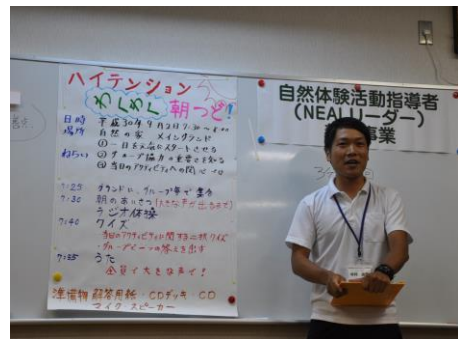 ハイテンション
わくわく 朝つど!
日時 平成30年9月2日 7:30~8:00
場所 自然の家 メイングランド
ねらい ① 一日を元気にスタートさせる
② グループ協力の重要さを知る
③ 当日のアクティビティへの関心
7:25 グランドに、グループ毎で集合
7:30 朝のあいさつ(大きな声が出るまで)
ラジオ体操
7:40 クイズ
当日のアクティビティに関する三択クイズ
グループで一つの答えを出す
7:55 うた
全員で大きな声で!
準備物 解答用紙・CDデッキ CD
マイク・スピーカー
自然体験活動指導者
(NEALリーダー)
事業